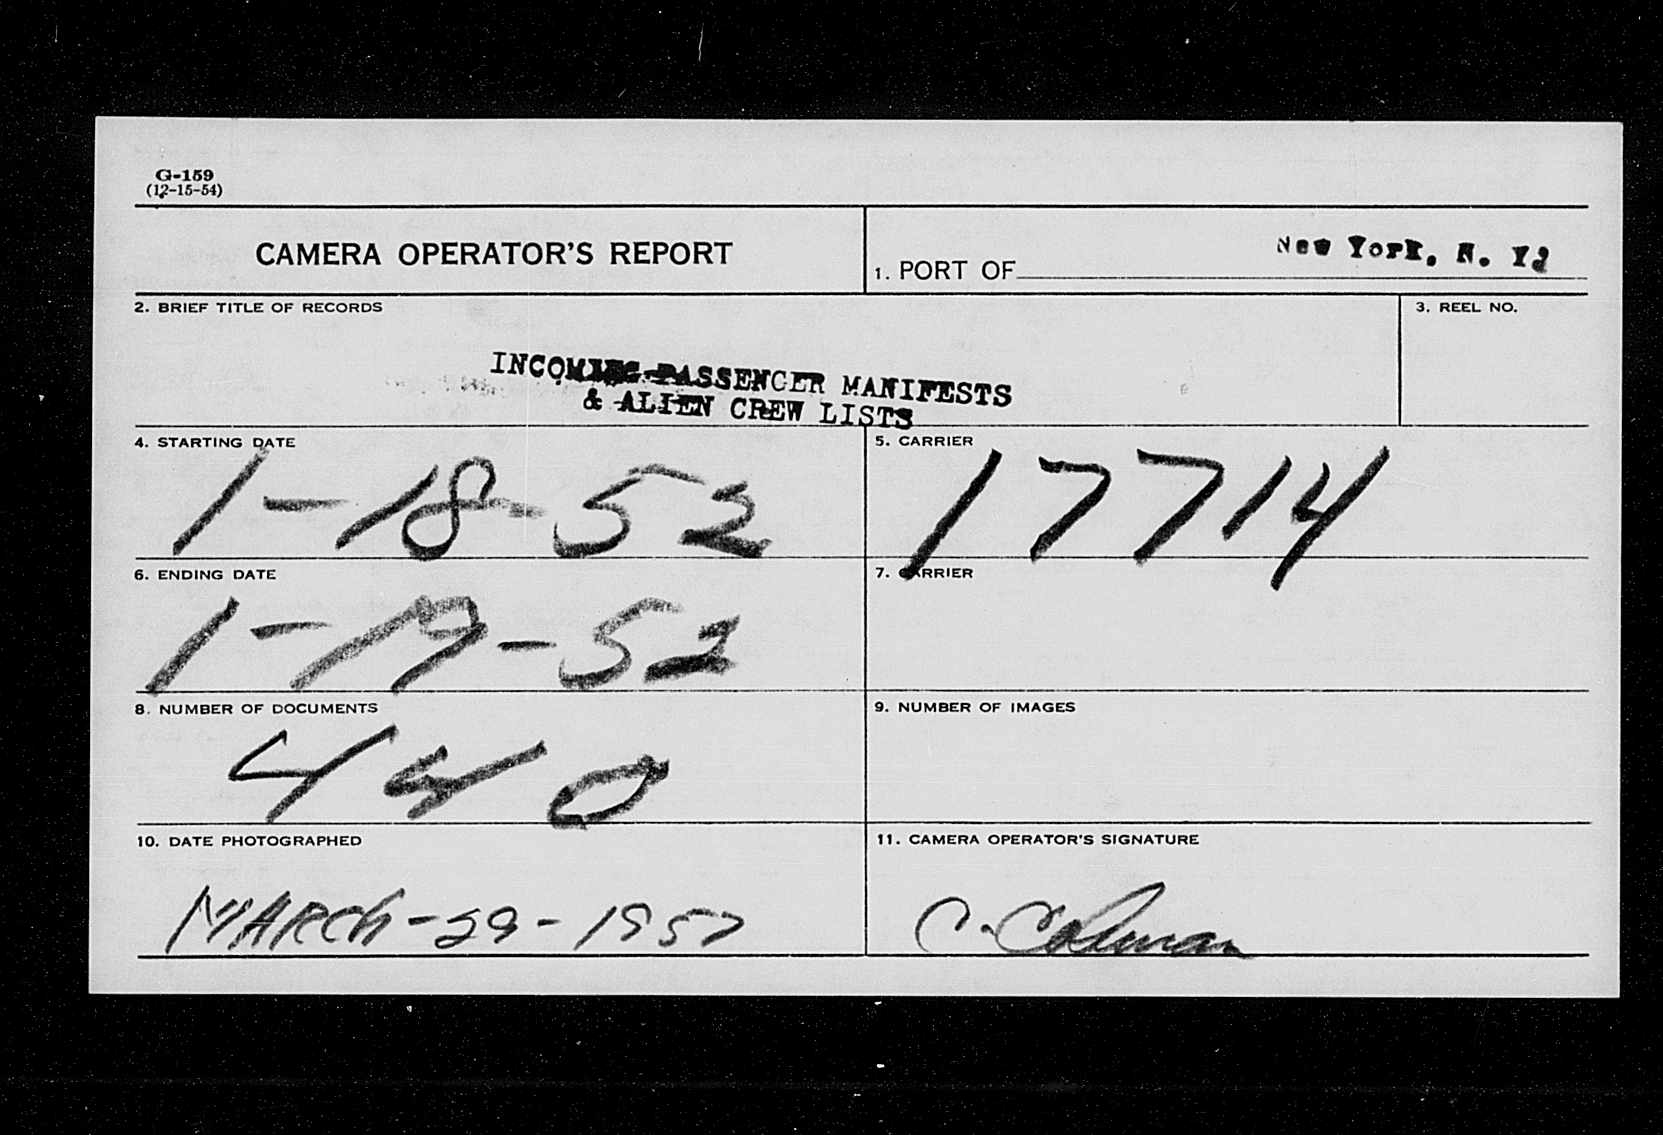 G-159
(12-15-54)
CAMERA OPERATOR'S REPORT
1. PORT OF New York, N. Y.
2. BRIEF TITLE OF RECORDS
3. REEL NO.
INCOMING PASSENGER MANIFESTS
& ALIEN CREW LISTS
4. STARTING DATE
1-18-52
5. CARRIER
17714
6. ENDING DATE
1-19-52
7. CARRIER
8. NUMBER OF DOCUMENTS
440
9. NUMBER OF IMAGES
10. DATE PHOTOGRAPHED
MARCH-29-1957
11. CAMERA OPERATOR'S SIGNATURE
C. Colman